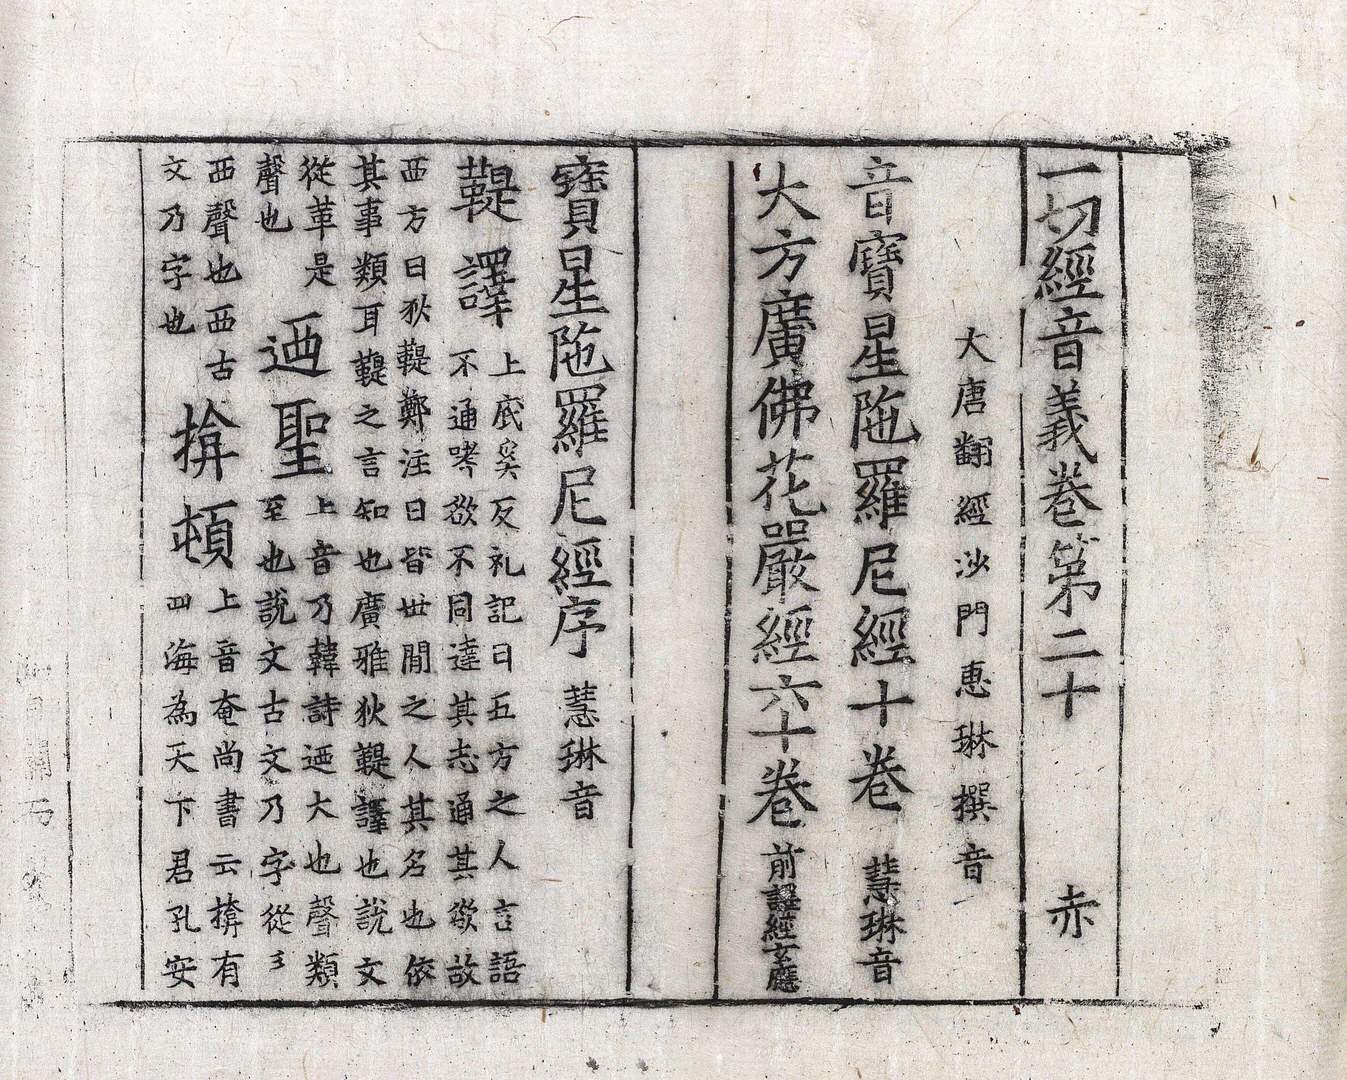 一切經音義卷第二十 赤
大唐翻經沙門惠琳撰音
音寶星陁羅尼經十卷 慧琳音
大方廣佛花嚴經六十卷 前譯經玄應
寶星陁羅尼經序 慧琳音
鞮譯 上底奚反礼記曰五方之人言語
不通嗜欲不同達其志通其欲故
西方曰狄鞮鄭注曰皆世間之人其名也依
其事類耳鞮之言知也廣雅狄鞮譯也說文
從革是
聲也
迺聖 上音乃韓詩迺大也聲類
至也說文古文乃字從
西聲也迺古
文乃字也
揜頓 上音奄尚書云揜有
四海為天下君孔安